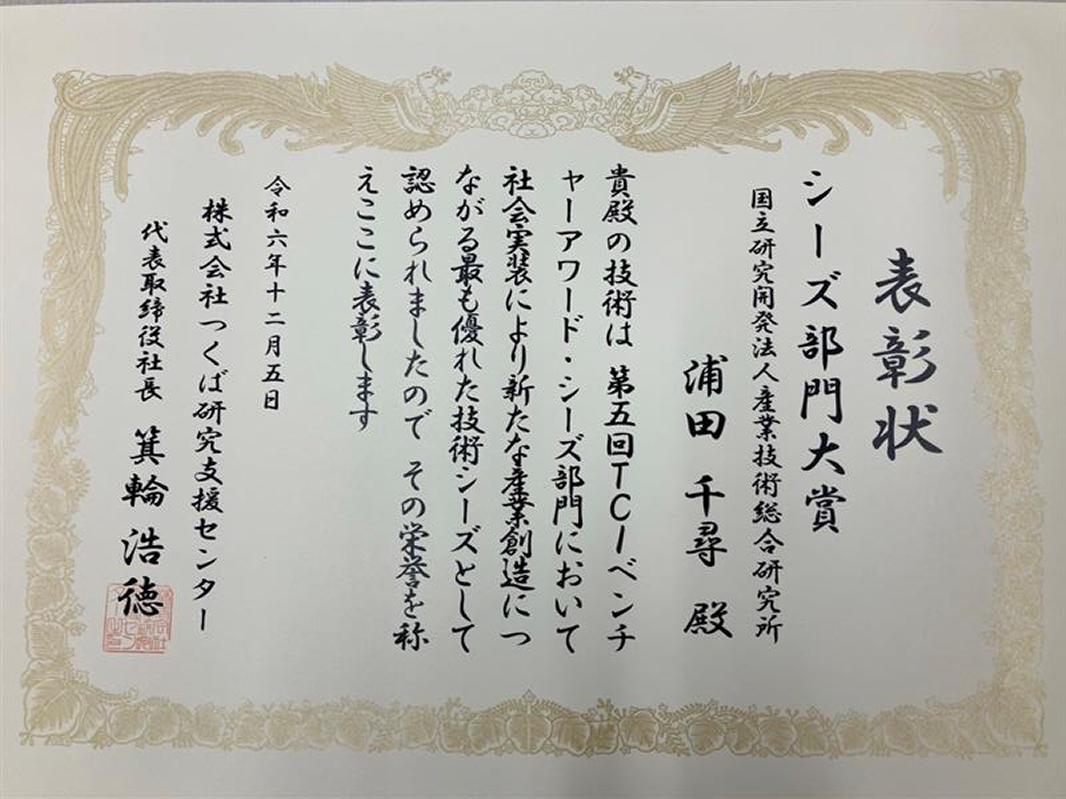 表彰状
シーズ部門大賞
国立研究開発法人産業技術総合研究所
浦田 千尋 殿
貴殿の技術は 第五回TCIベンチ
ャーアワード・シーズ部門において
社会実装により新たな産業創造につ
ながる最も優れた技術シーズとして
認められましたので その栄誉を称
えここに表彰します
令和六年十二月五日
株式会社つくば研究支援センター
代表取締役社長 箕輪 浩徳